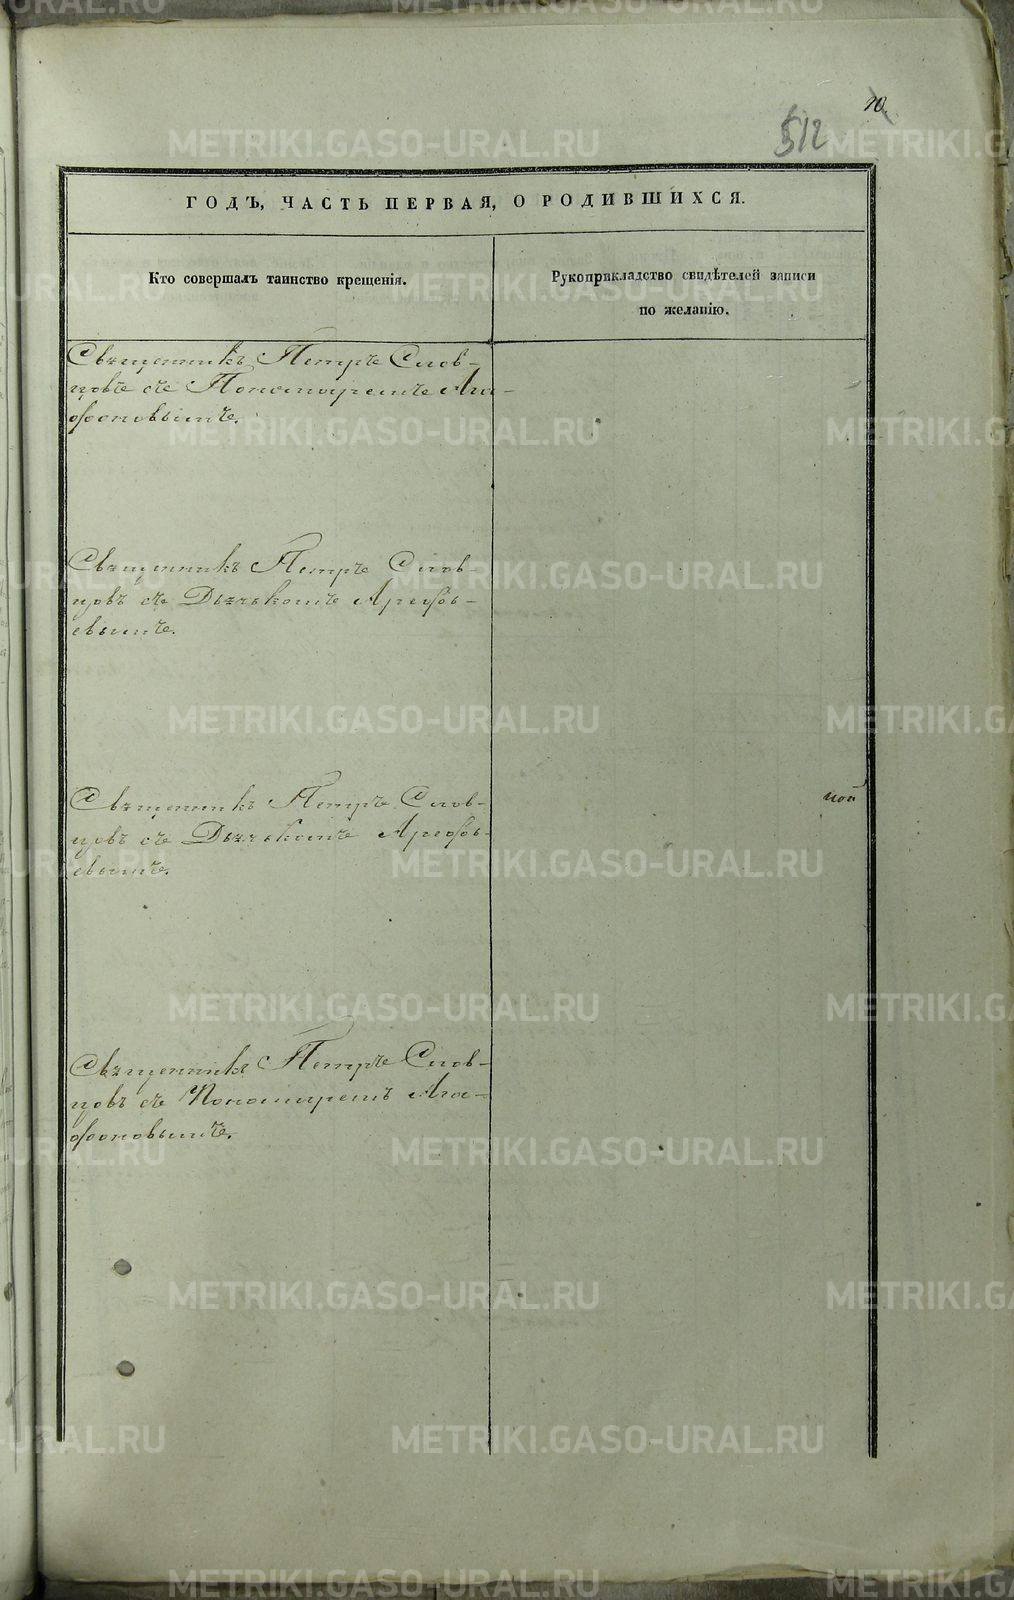 10.
512
ГОДЪ, ЧАСТЬ ПЕРВАЯ, О РОДИВШИХСЯ.
Кто совершалъ таинство крещенія.
Рукоприкладство свидѣтелей записи
по желанію.
Священникъ Петръ Слов-
цовъ съ Пономаремъ Ага-
фоновымъ.
Священникъ Петръ Слов-
цовъ съ Дьячкомъ Арефь-
евымъ.
Священникъ Петръ Слов-
цовъ съ Дьячкомъ Арефь-
евымъ.
ной
Священникъ Петръ Слов-
цовъ съ Пономаремъ Ага-
фоновымъ.
METRIKI.GASO-URAL.RU